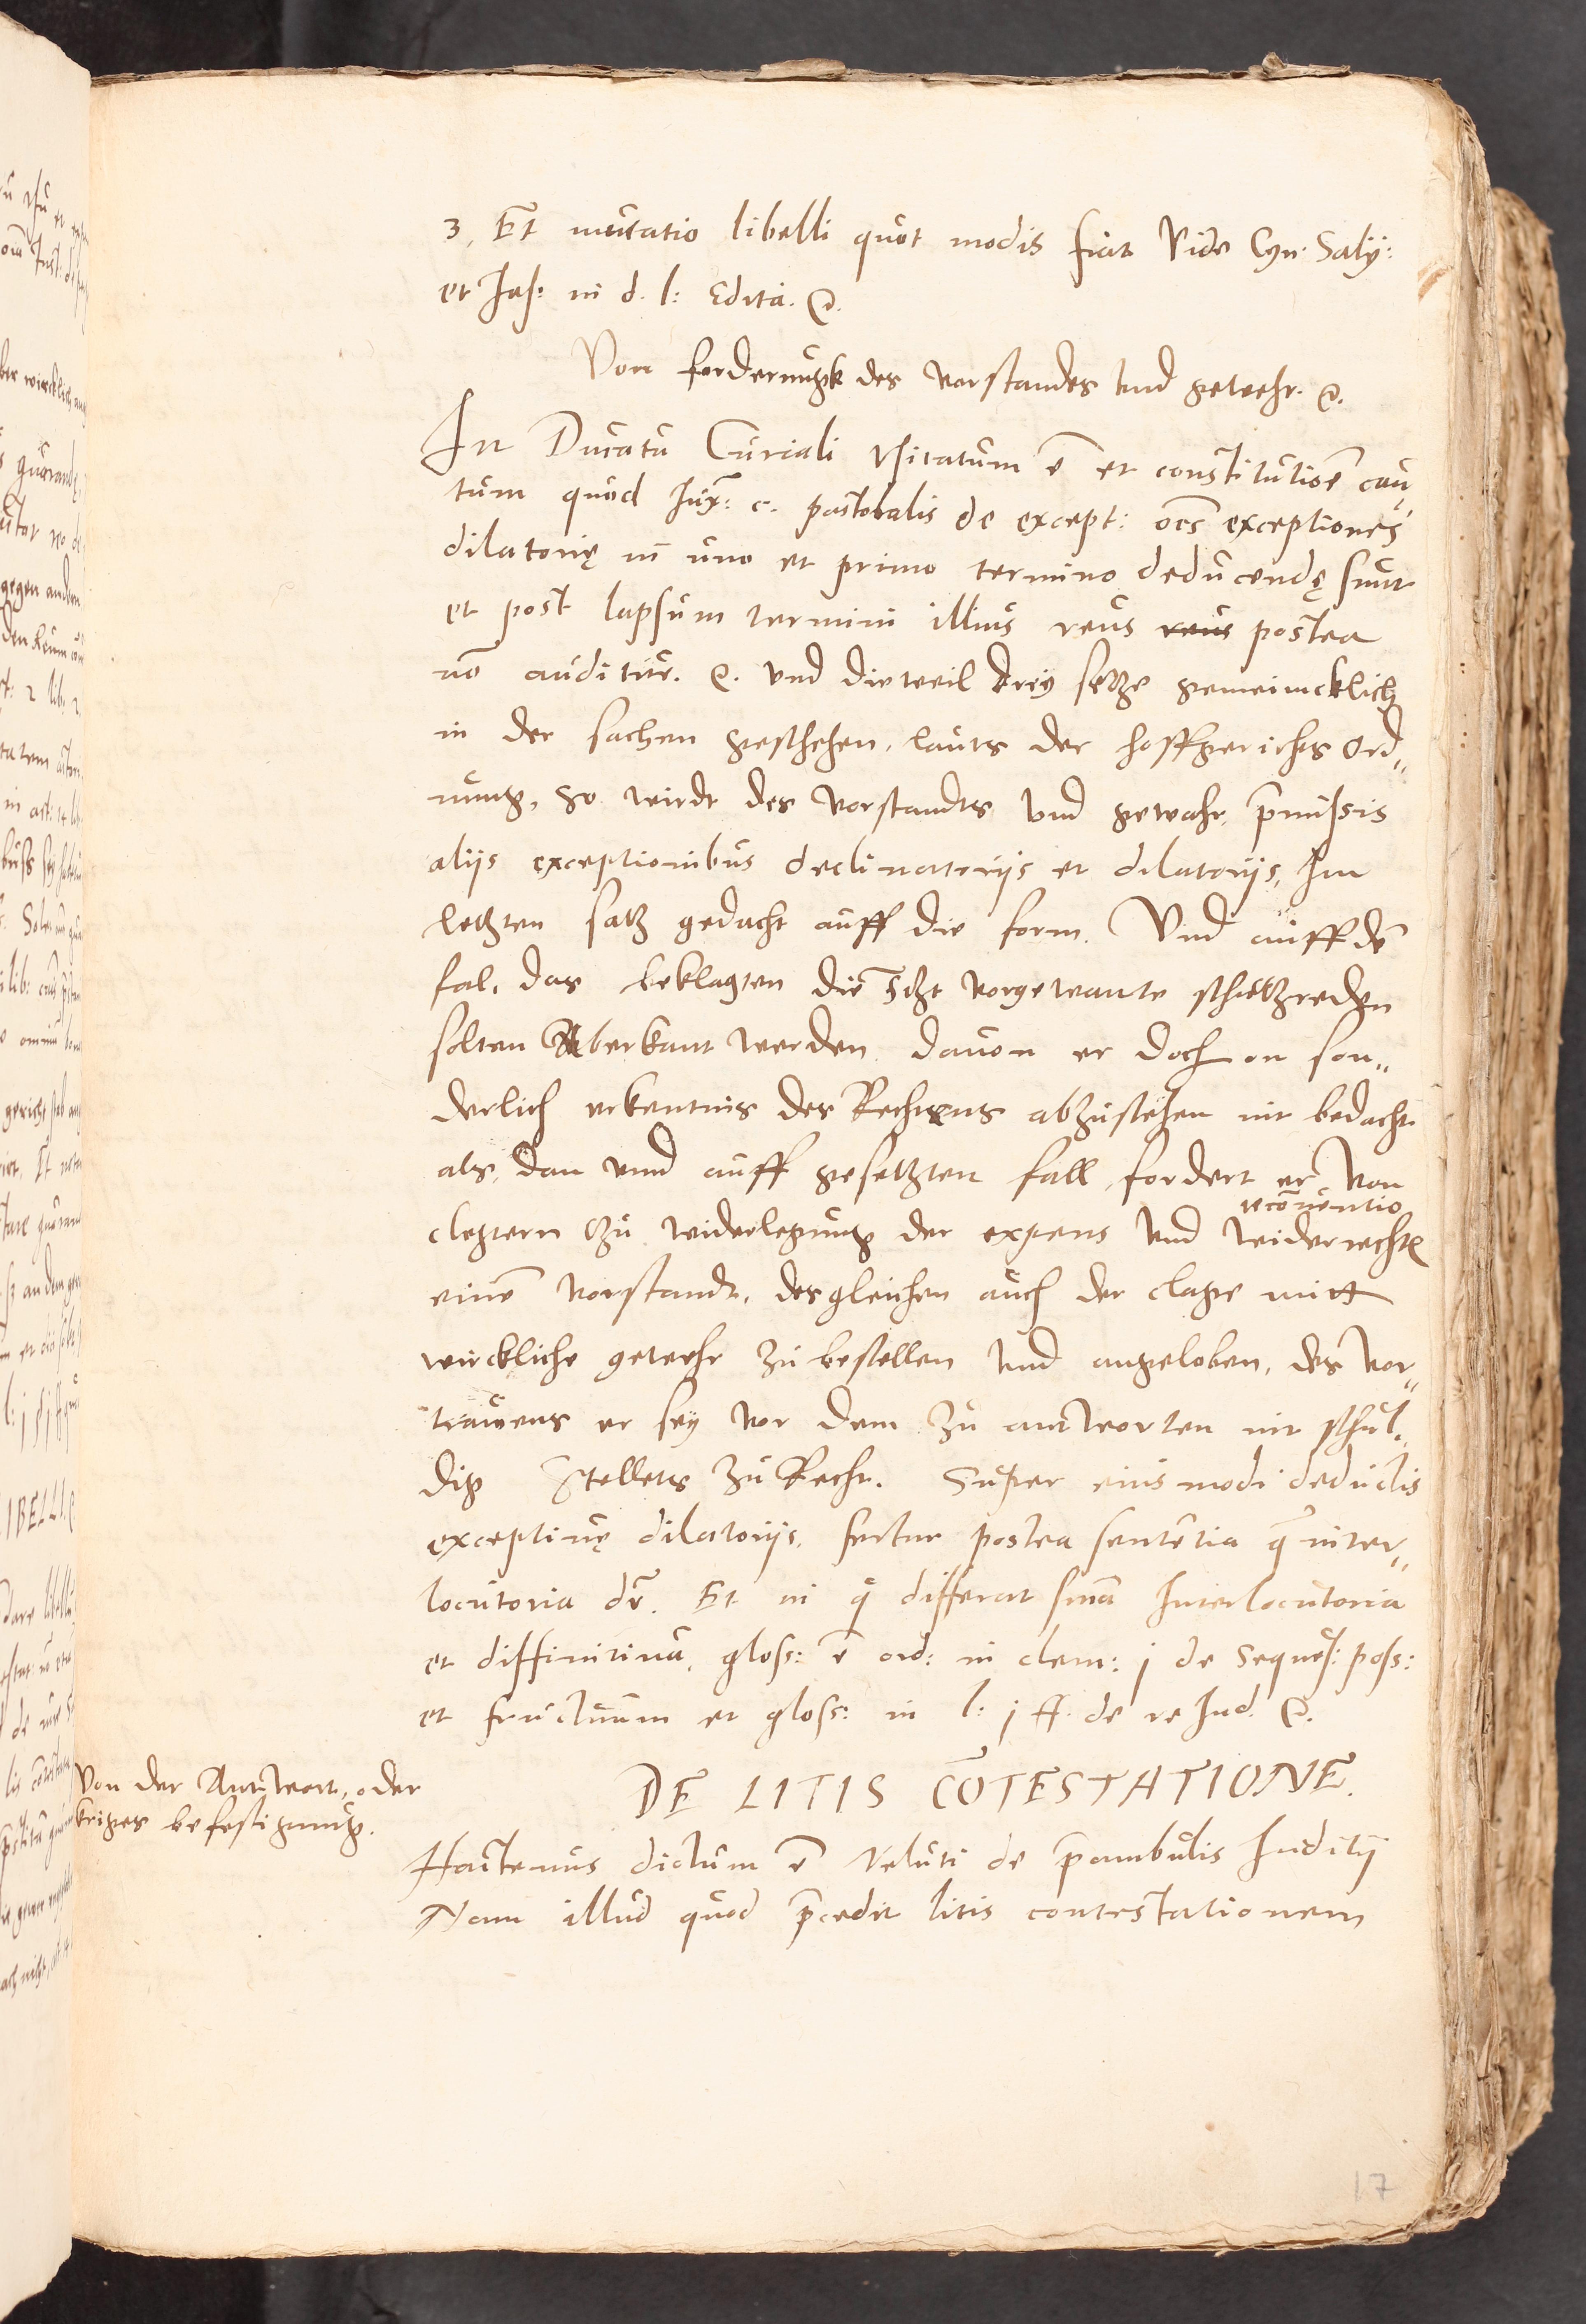 3. Et mutatio libelli quot modis fiat Vide Cyn: Saly:
et Jas: in d. l: Edita. &.
Von forderungk des vorstandes vnd gewehr. &.
In Ducatu Curiali vsitatum ē et constitutiōe cau„
tum quod Jux: c. pastoralis de except: oēs exceptiones
dilatorię in uno et primo termino deducendę sunt
et post lapsum termini illius reus reus postea
nō auditur. &. vnd dieweil drey setze gemeincklich
in der sachen geschehen, lauts der hoffgerichts Ord„
nung, so wirdt des vorstandts vnd gewehr, p̄missis
alijs exceptionibus declinatorijs et dilatorijs, Im
letzten satz gedacht auff die form. Vnd auff dē
fal, das beklagten die itzt vorgewante schutzreden
solten Aberkant werden, dauon er doch on son„
derlich erkentnis des Rechtens abzustehen nit bedacht
als, dan vnnd auff gesetzten fall, fordert er von
recōuentio
clegern zu widerlegung der expens vnd widerrechts
einē vorstandt, desgleichen auch der clage mitt
wirckliche gewehr zu bestellen vnd angeloben, des vor„
trawens er sey vor dem zu antworten nit schul„
dig Stellets zu Recht. Super eiusmodi deductis
exceptinę dilatorijs, fertur postea sententia q̄ inter„
locutoria dr̄. Et in q̊ differat sn̄ia Interlocutoria
et diffinitiua, gloss: ē ord: in clem: j de Seques: poss:
et fructuum et gloss: in l: j ff. de re Jud. &.
Von der Antwort, oder
kriges befestigung.
DE LITIS CŌTESTATIONE.
Hactenus dictum ē veluti de p̄ambulis Juditij
Nam illud quod p̄cedit litis contestationem
17